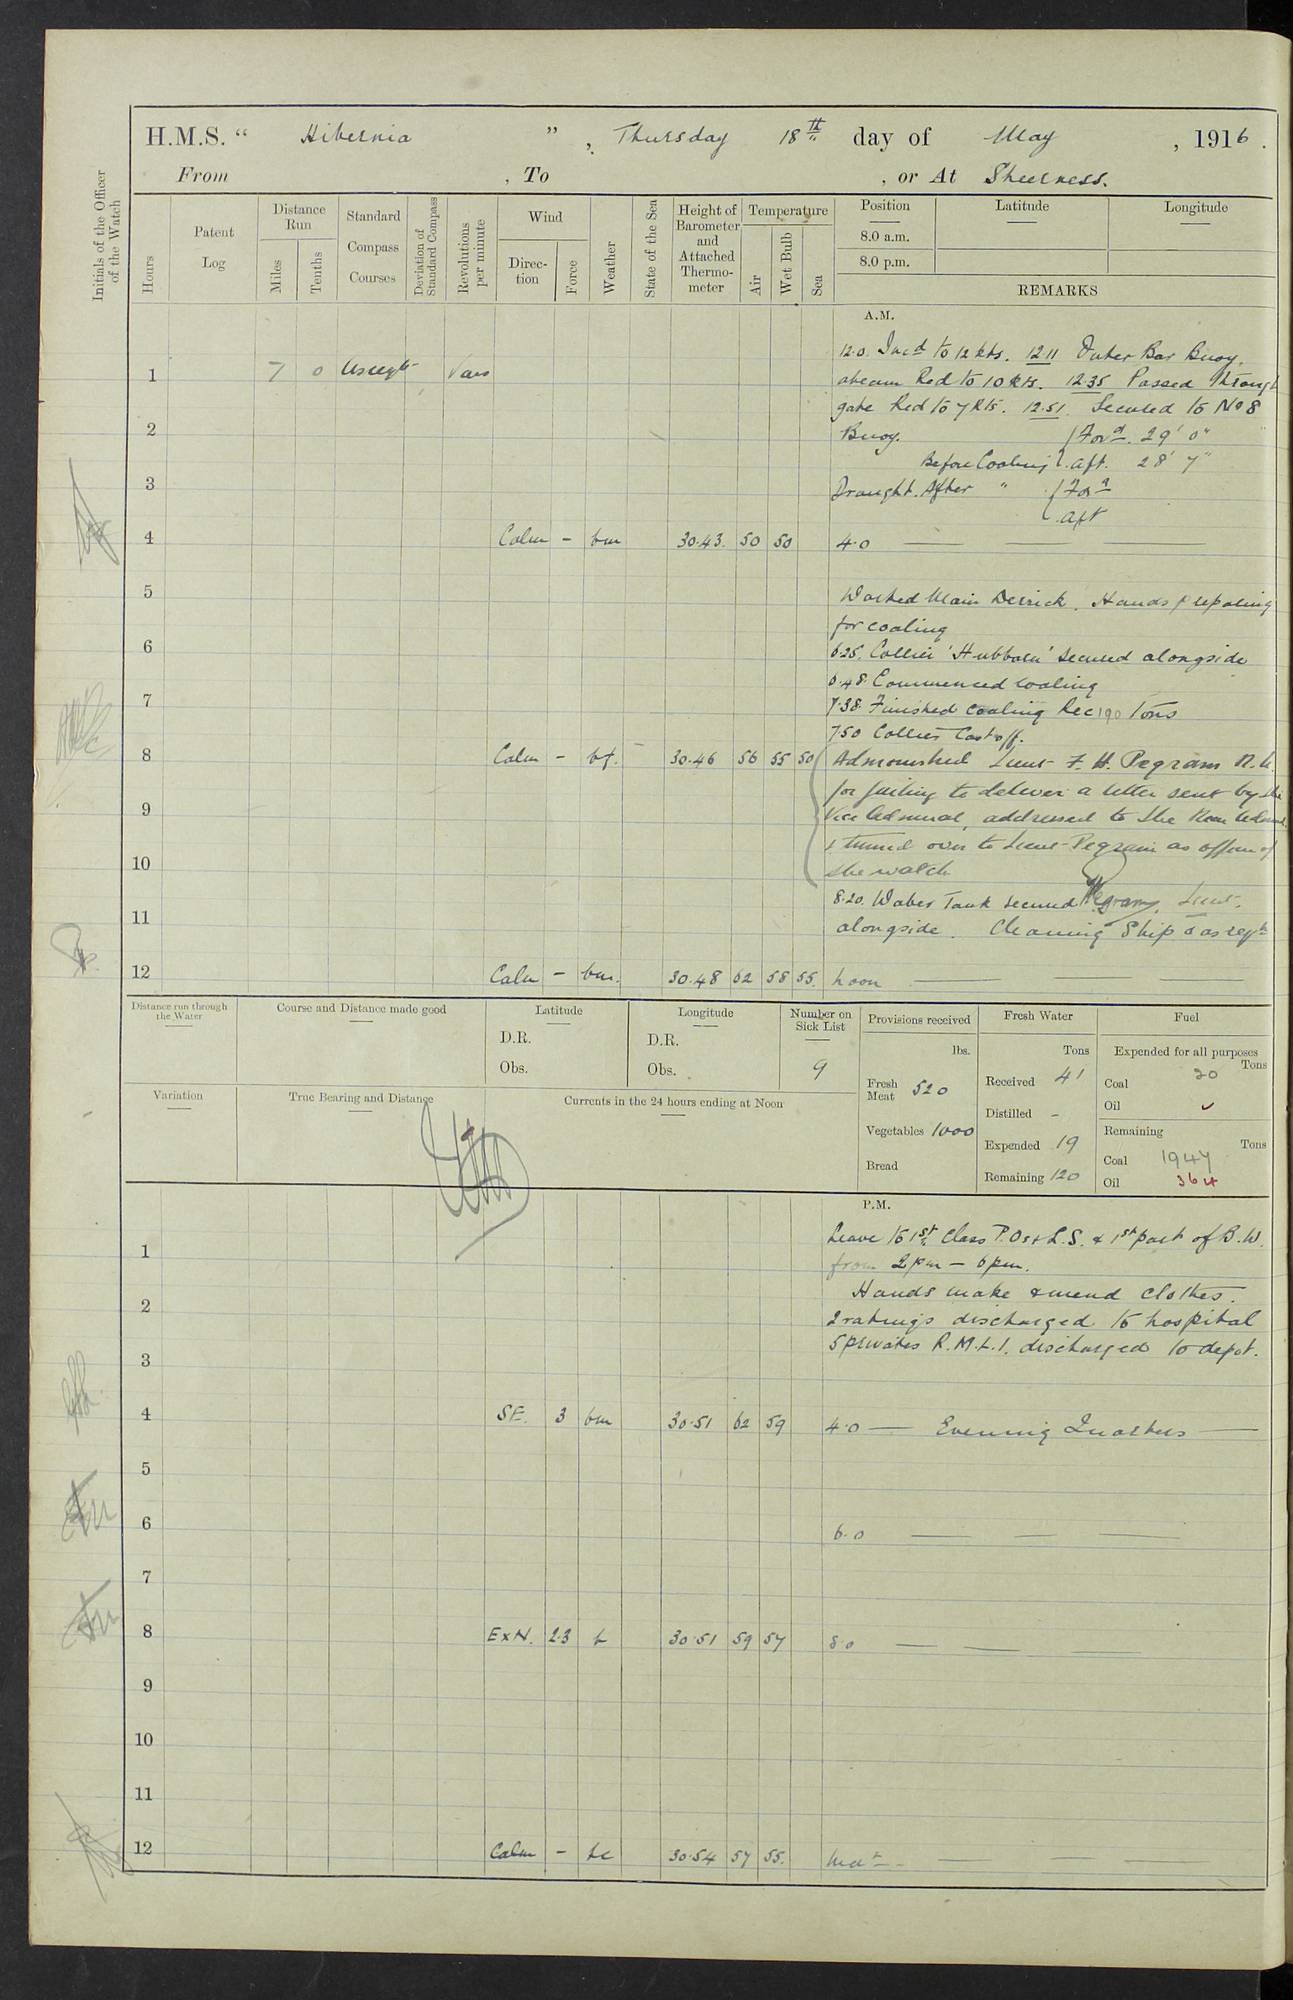 H.M.S. “ Hibernia ” , Thursday 18th day of May , 1916.
From , To , or At Sheerness.
Initials of the Officer of the Watch
Hours
Patent Log
Distance Run
Miles
Tenths
Standard Compass Courses
Deviation of Standard Compass
Revolutions per minute
Wind
Direction
Force
Weather
State of the Sea
Height of Barometer and Attached Thermometer
Temperature
Air
Wet Bulb
Sea
Position
Latitude
Longitude
8.0 a.m.
8.0 p.m.
REMARKS
A.M.
12.0. Incd to 12 kts. 12.11 Outer Bar Buoy.
1 7 0 As reqte Vars abeam Red to 10 kts. 12.35 Passed through
gate Red to 7 kts. 12.51. Secured to No 8
2 Buoy. Ford. 29' 0"
Before Coaling aft. 28' 7"
3 Draught. After " Ford
aft
4 Calm - bm 30.43. 50 50 4.0
5 Worked Main Derrick. Hands preparing
for coaling
6 6.25. Collier 'Hubbora' secured alongside
6.48. Commenced coaling
7 7.38. Finished Coaling Rec 190 Tons
7.50 Collier Cast off.
8 Calm - bf. 30.46 56 55 50 Admonished Lieut F. H. Pegram R.N.
for failing to deliver a letter sent by the
9 Vice Admiral, addressed to the Rear Admiral
& turned over to Lieut Pegram as officer of
10 the watch
8.20. Water Tank secured Pegram, Lieut.
11 alongside. Cleaning Ship & as reqte
12 Calm - bm. 30.48 62 58 55. Noon
Distance run through the Water
Course and Distance made good
Latitude
D.R.
Obs.
Longitude
D.R.
Obs.
Number on Sick List
9
Provisions received
lbs.
Fresh Meat 520
Vegetables 1000
Bread
Fresh Water
Tons
Received 41
Distilled -
Expended 19
Remaining 120
Fuel
Expended for all purposes
Tons
Coal 20
Oil ✓
Remaining
Tons
Coal 1947
Oil 364
Variation
True Bearing and Distance
Currents in the 24 hours ending at Noon
P.M.
Leave to 1st Class P.Os & L.S. & 1st part of B.W.
1 from 2 pm - 6 pm.
Hands make & mend clothes.
2 2 ratings discharged to hospital
3 5 privates R.M.L.I. discharged to depot.
4 SE. 3 bm 30.51 62 59 4.0 Evening Quarters
5
6 6.0
7
8 ExN. 2.3 b 30.51 59 57 8.0
9
10
11
12 Calm - bc 30.54 57 55. Midt